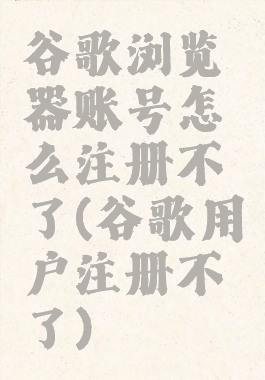 谷歌浏览
器账号怎
么注册不
了(谷歌用
户注册不
了)